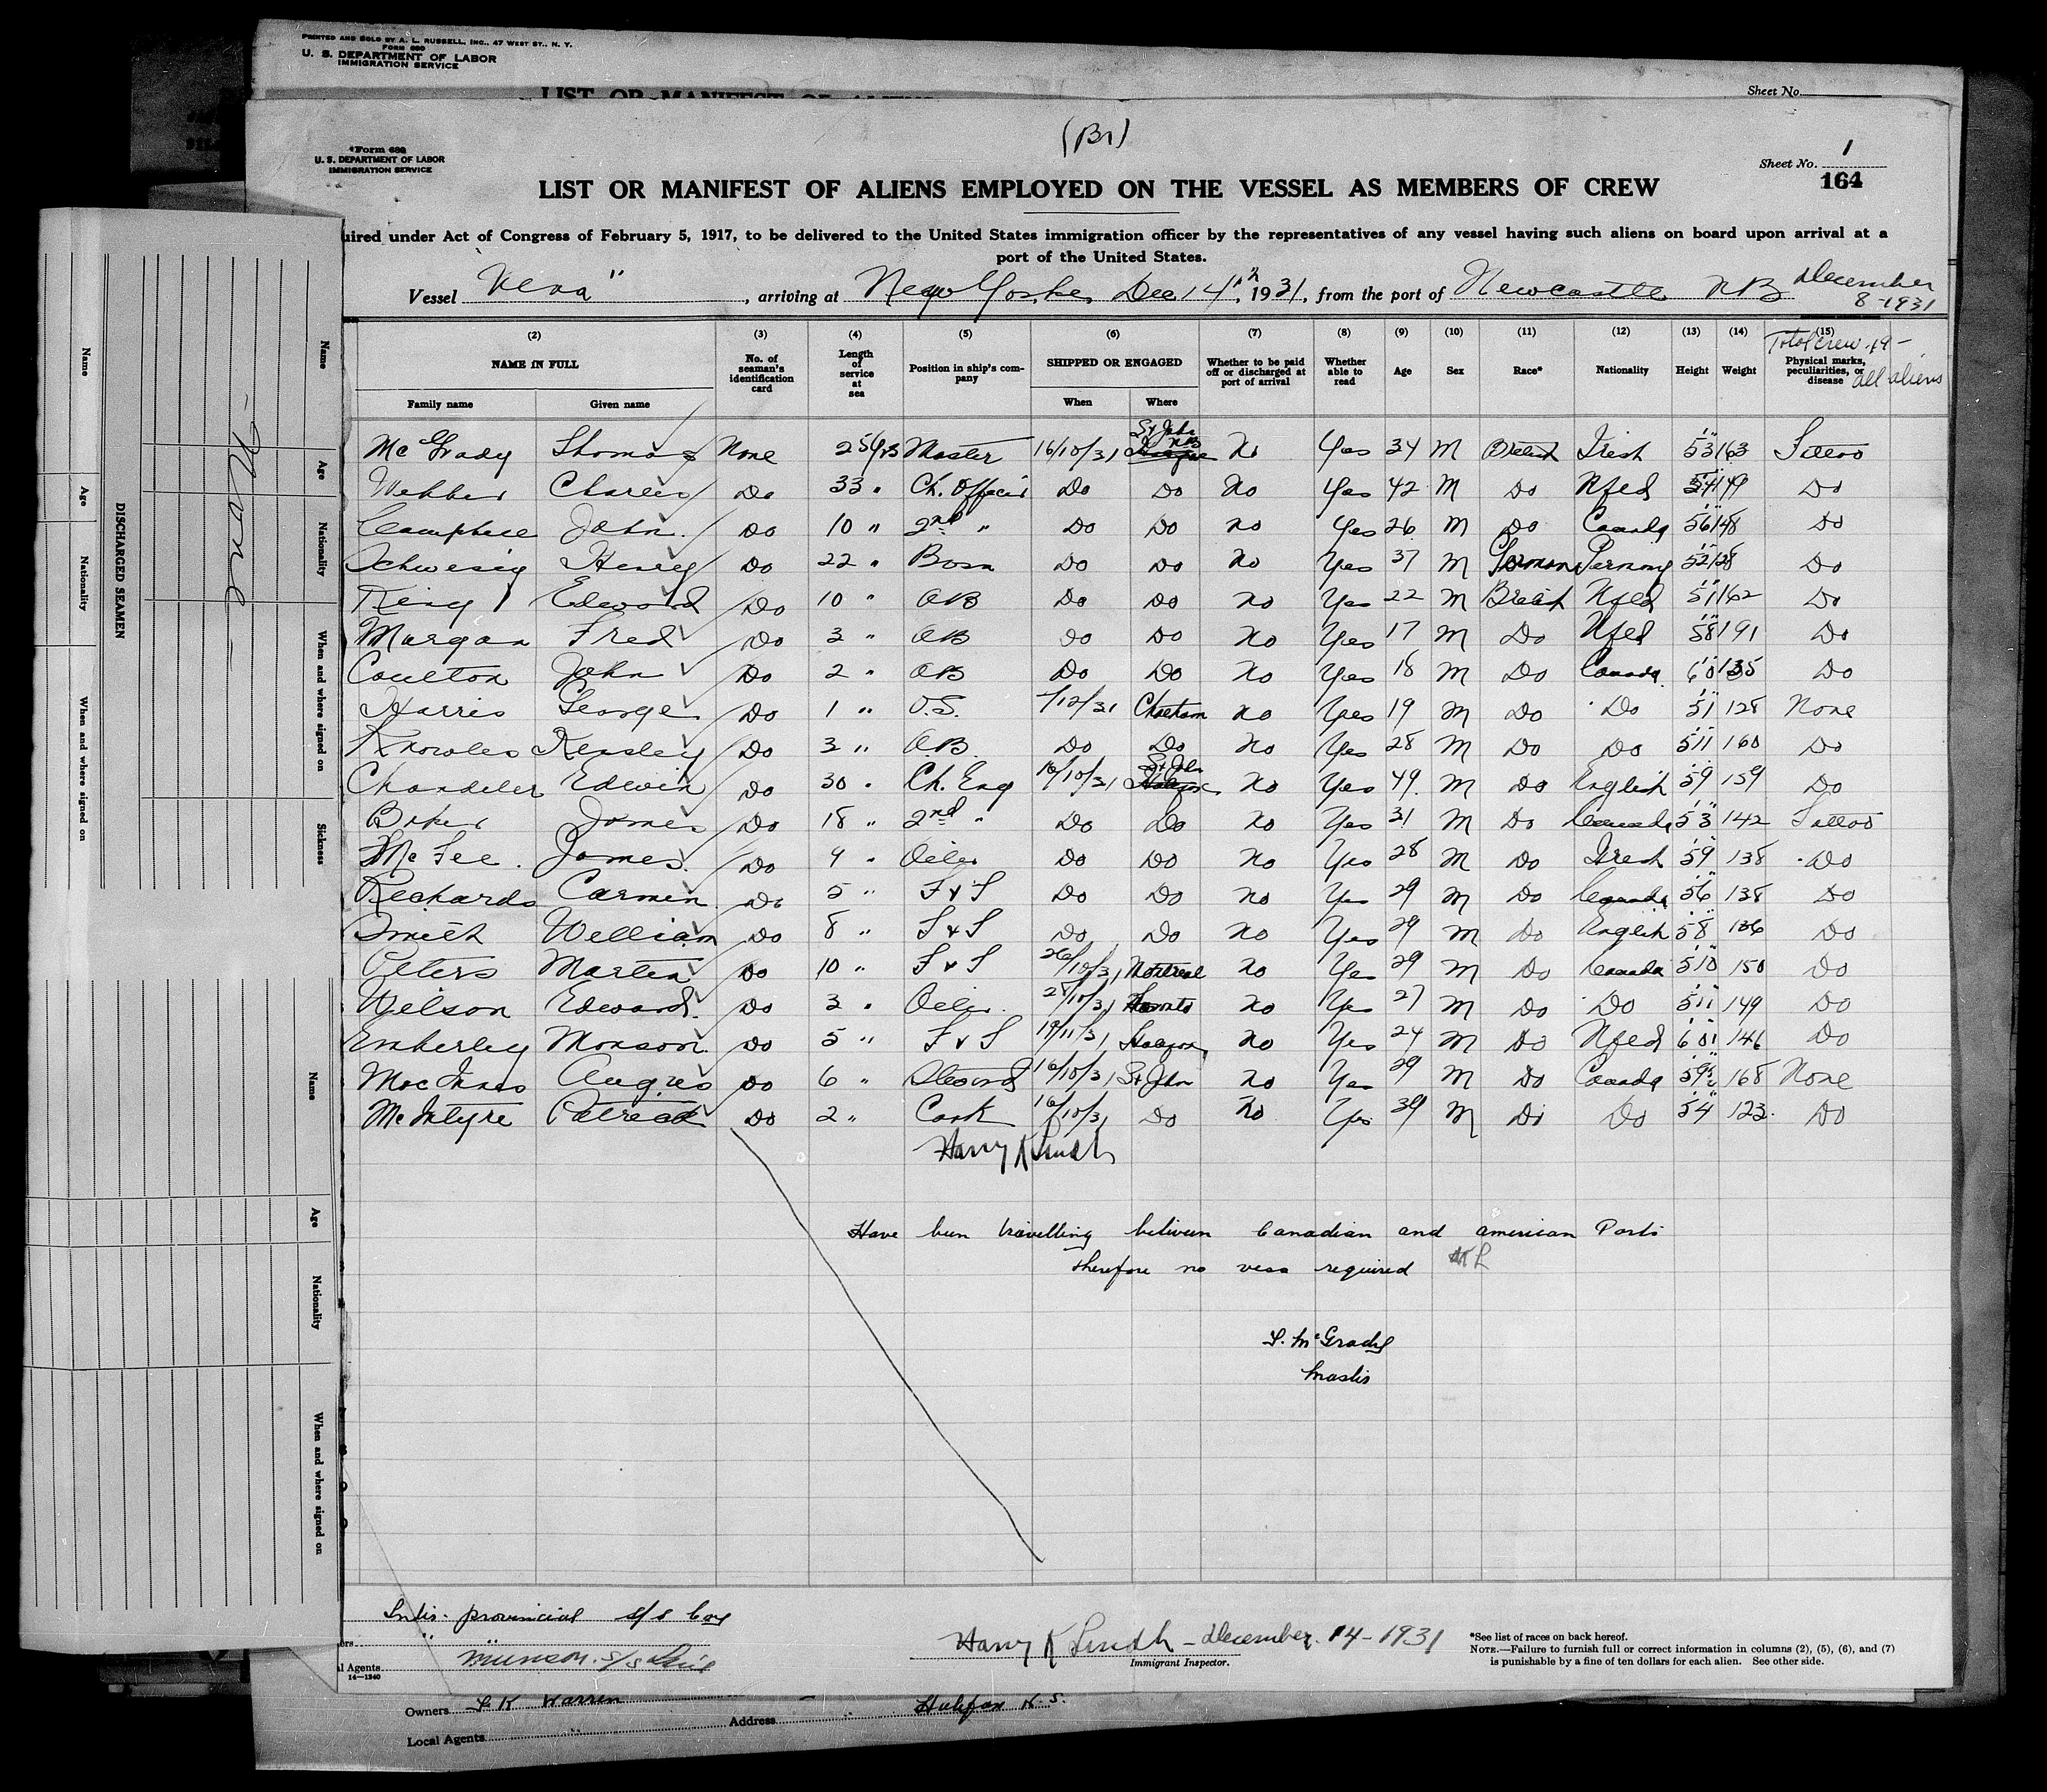 PRINTED AND SOLD BY A. L. RUSSELL, INC., 47 WEST ST., N. Y.
FORM 680
U. S. DEPARTMENT OF LABOR
IMMIGRATION SERVICE
LIST OR MANIFEST OF ALIENS
Sheet No.
(Br)
Form 680
U. S. DEPARTMENT OF LABOR
IMMIGRATION SERVICE
Sheet No. 1
164
LIST OR MANIFEST OF ALIENS EMPLOYED ON THE VESSEL AS MEMBERS OF CREW
uired under Act of Congress of February 5, 1917, to be delivered to the United States immigration officer by the representatives of any vessel having such aliens on board upon arrival at a
port of the United States.
Vessel , arriving at New York Dec 14th, 1931, from the port of Newcastle NB December 8-1931
(2) (3) (4) (5) (6) (7) (8) (9) (10) (11) (12) (13) (14) (15)
Total crew 19 - all aliens
NAME IN FULL No. of seaman's identification card Length of service at sea Position in ship's company SHIPPED OR ENGAGED Whether to be paid off or discharged at port of arrival Whether able to read Age Sex Race* Nationality Height Weight Physical marks, peculiarities, or disease
Family name Given name When Where
McGrady Thomas None 25 yrs Master 16/10/31 St John NB No Yes 34 M British Irish 5'3" 163 Tattoo
Webber Charles Do 33 " Ch. Officer Do Do No Yes 42 M Do Nfld 5'4" 149 Do
Campbell John Do 10 " 2nd " Do Do No Yes 26 M Do Canada 5'6" 148 Do
Schwesig Henry Do 22 " Bosn Do Do No Yes 37 M German Germany 5'2" 128 Do
King Edward Do 10 " AB Do Do No Yes 22 M British Nfld 5'1" 162 Do
Morgan Fred Do 3 " AB Do Do No Yes 17 M Do Nfld 5'8" 191 Do
Coulton John Do 2 " AB Do Do No Yes 18 M Do Canada 6'0" 135 Do
Harris George Do 1 " O.S. 7/12/31 Chatham No Yes 19 M Do Do 5'1" 128 None
Knowles Kensley Do 3 " AB Do Do No Yes 28 M Do Do 5'11" 160 Do
Chandeler Edwin Do 30 " Ch. Eng 16/10/31 St John No Yes 49 M Do English 5'9" 159 Do
Baker James Do 18 " 2nd " Do Do No Yes 31 M Do Canada 5'3" 142 Tattoo
McFee James Do 9 " Oiler Do Do No Yes 28 M Do Irish 5'9" 138 Do
Richards Carmen Do 5 " F & S Do Do No Yes 29 M Do Canada 5'6" 138 Do
Smith William Do 8 " F & S Do Do No Yes 29 M Do English 5'8" 136 Do
Peters Martin Do 10 " F & S 26/10/31 Montreal No Yes 29 M Do Canada 5'10" 150 Do
Wilson Edward Do 3 " Oiler 28/10/31 Toronto No Yes 27 M Do Do 5'11" 149 Do
Emberley Monson Do 5 " F & S 19/11/31 Halifax No Yes 24 M Do Nfld 6'01" 146 Do
MacInnis Angus Do 6 " Steward 16/10/31 St John No Yes 29 M Do Canada 5'9½" 168 None
McIntyre Patrick Do 2 " Cook 16/10/31 Do No Yes 39 M Do Do 5'4" 123 Do
Harry K Lindh
Have been travelling between Canadian and American Ports
therefore no visa required
T. McGrady
Master
Inter-provincial S/S Coy
Munson S/S Line
l Agents
14-1240
Harry K Lindh - December 14-1931
Immigrant Inspector.
*See list of races on back hereof.
NOTE.—Failure to furnish full or correct information in columns (2), (5), (6), and (7)
is punishable by a fine of ten dollars for each alien. See other side.
Owners K Warren Address Halifax N.S.
Local Agents
DISCHARGED SEAMEN
Name Age Nationality When and where signed on Sickness
Name Age Nationality When and where signed on
- None -
Name Age Nationality When and where signed on